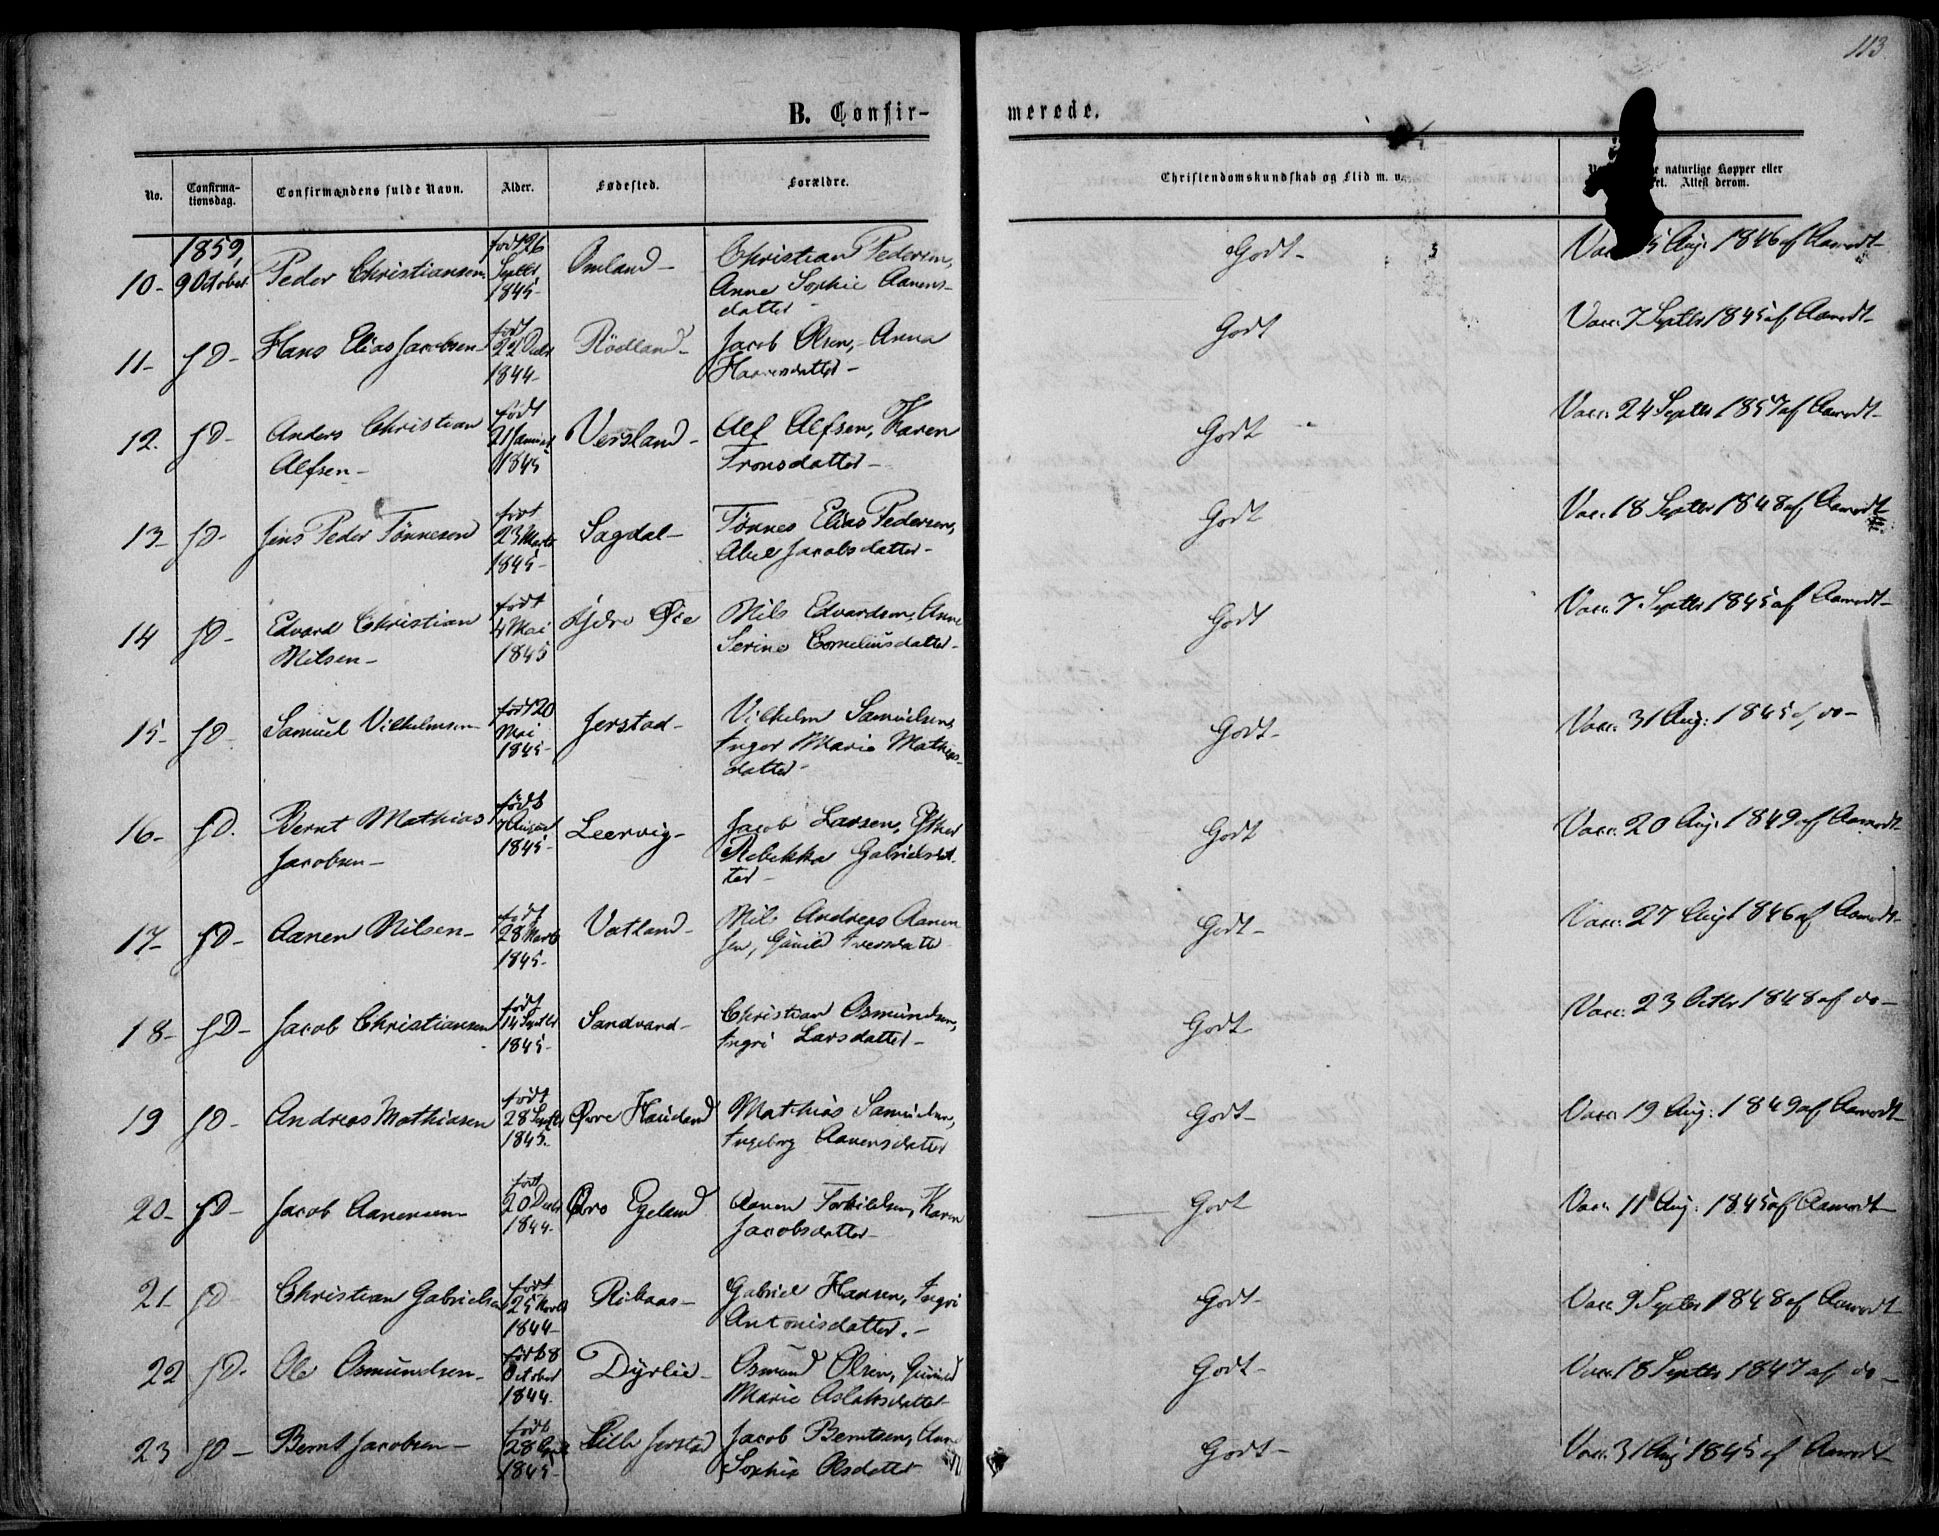 113
B. Confir- merede.
No. Confirma- tionsdag. Confirmandens fulde Navn. Alder. Fødested. Forældre. Christendomskundskab og Flid m. v. naturlige Kopper eller
Attest derom.
1859,
10- 9 October Peder Christiansen født 26 Septbr 1845- Omland- Christian Pedersen, Anne Sophie Aanens- datter- Godt- Vacc. Aug: 1846 af Aamodt-
11- fD- Hans Elias Jacobsen født 22 Decbr 1844- Rødland- Jacob Olsen,- Anna datter- Godt Vacc. 7 Septbr 1845 af Aamodt-
12. fD- Anders Christian Alfsen- født 21 Januar 1845 Versland- Alf Alfsen, Karen Tronsdatter- Godt Vacc. 24 Septbr 1857 af Aamodt-
13- fD- Jens Peder Tønnesen født 23 Marts 1845- Sagdal- Tønnes Elias Pedersen, Abel Jacobsdatter- Godt Vacc. 18 Septbr 1848 af Aamodt
14 fD- Edvard Christian Nilsen- født 4 Mai 1845 Øie Nils Edvardsen, Anne Serine Corneliusdatter- Godt Vacc. 7 Septbr 1845 af Aamodt-
15- fD- Samuel Vilhelmsen- født 20 Mai 1845- Jerstad- Vilhelm Samuelsen, Inger Marie Mathias- datter- Godt- Vacc. 31 Aug: 1845 af do-
16- fD. Bernt Mathias Jacobsen- født 7 August 1845- Leervig- Jacob Larsen, Esther Rebekka Gabrielsdat- ter- Godt Vacc. 20 Aug: 1849 af Aamodt-
17- fD- Aanen Nilsen- født 28 Marts 1845- Vatland- Nils Andreas Aanen sen, Gunild Iversdatter Godt- Vacc. 27 Aug 1846 af Aamodt-
18- fD- Jacob Christiansen født 14 Septbr 1845- Sandvand- Christian Osmundsen, Ingri Larsdatter- Godt- Vacc. 23 Octbr 1848 af do-
19 fD- Andreas Mathiasen født 28 Septbr 1845. Øvre Haudand Mathias Samuelsen, Ingeborg Aanensdatter Godt- Vacc. 19 Aug: 1849 af Aamodt-
20- fD- Jacob Aanensen født 20 Decbr 1844- Øvre Egeland Aanen Torkildsen, Karen Jacobsdatter- Godt Vacc. 11 Aug: 1845 af Aamodt-
21- fD- Christian Gabrielsen født 25 Novbr 1844- Ribaas- Gabriel Hansen, Ingri Antonisdatter.- Godt- Vacc. 9 Septbr 1848 af Aamodt-
22 fD. Ole Osmundsen- født 8 October 1844. Dyrlie- Osmund Olsen, Gunild Marie Aslaksdatter Godt- Vacc. 18 Septbr 1847 af do-
23 fD- Bernt Jacobsen- født 28 1845- Lille Jerstad Jacob Berntsen, Anne Sophie Olsdatter Godt- Vacc. 31 Aug 1845 af Aamodt-